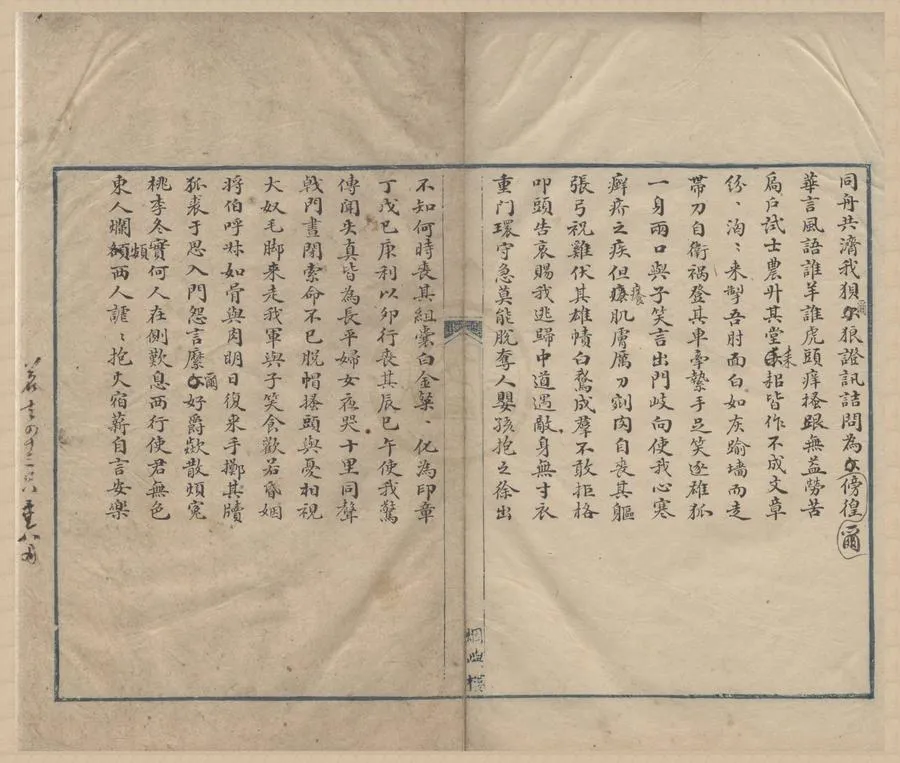 同舟共濟我狽尒狼證訊詰問為尒傍徨
爾
爾
華言風語誰羊誰虎頭痒搔跟無益勞苦
為戶試士農升其堂耒耜皆作不成文章
耒
紛、洶、來掣吾肘面白如灰踰墻而走
帶刀自衛禍登其車牽縶手足笑逐雄狐
一身兩口與子笑言出門岐向使我心寒
癬疥之疾但癢肌膚厲刀割肉自喪其軀
癢
張弓祝雞伏其雄幘白鷔成羣不敢拒格
叩頭告哀賜我逃歸中道遇敵身無寸衣
重門環守急莫能脫奪人嬰孩抱之徐出
烟嶼樓
不知何時喪其組橐白金燊、化為印章
丁戊巳庚利以夘行喪其辰巳午使我驚
傳聞失真皆為長平婦女夜哭十里同聲
戟門晝閉索命不已脫帽搔頭與憂相視
大奴毛脚來走我軍與子笑食歡若昏姻
將伯呼㳽如骨與肉明日復來手擲其牘
狐裘于思入門怨言縻尒好爵歘散煩寃
爾
桃李冬實何人在側歎息兩行使君無色
東人爛額西人謔、抱火宿薪自言安樂